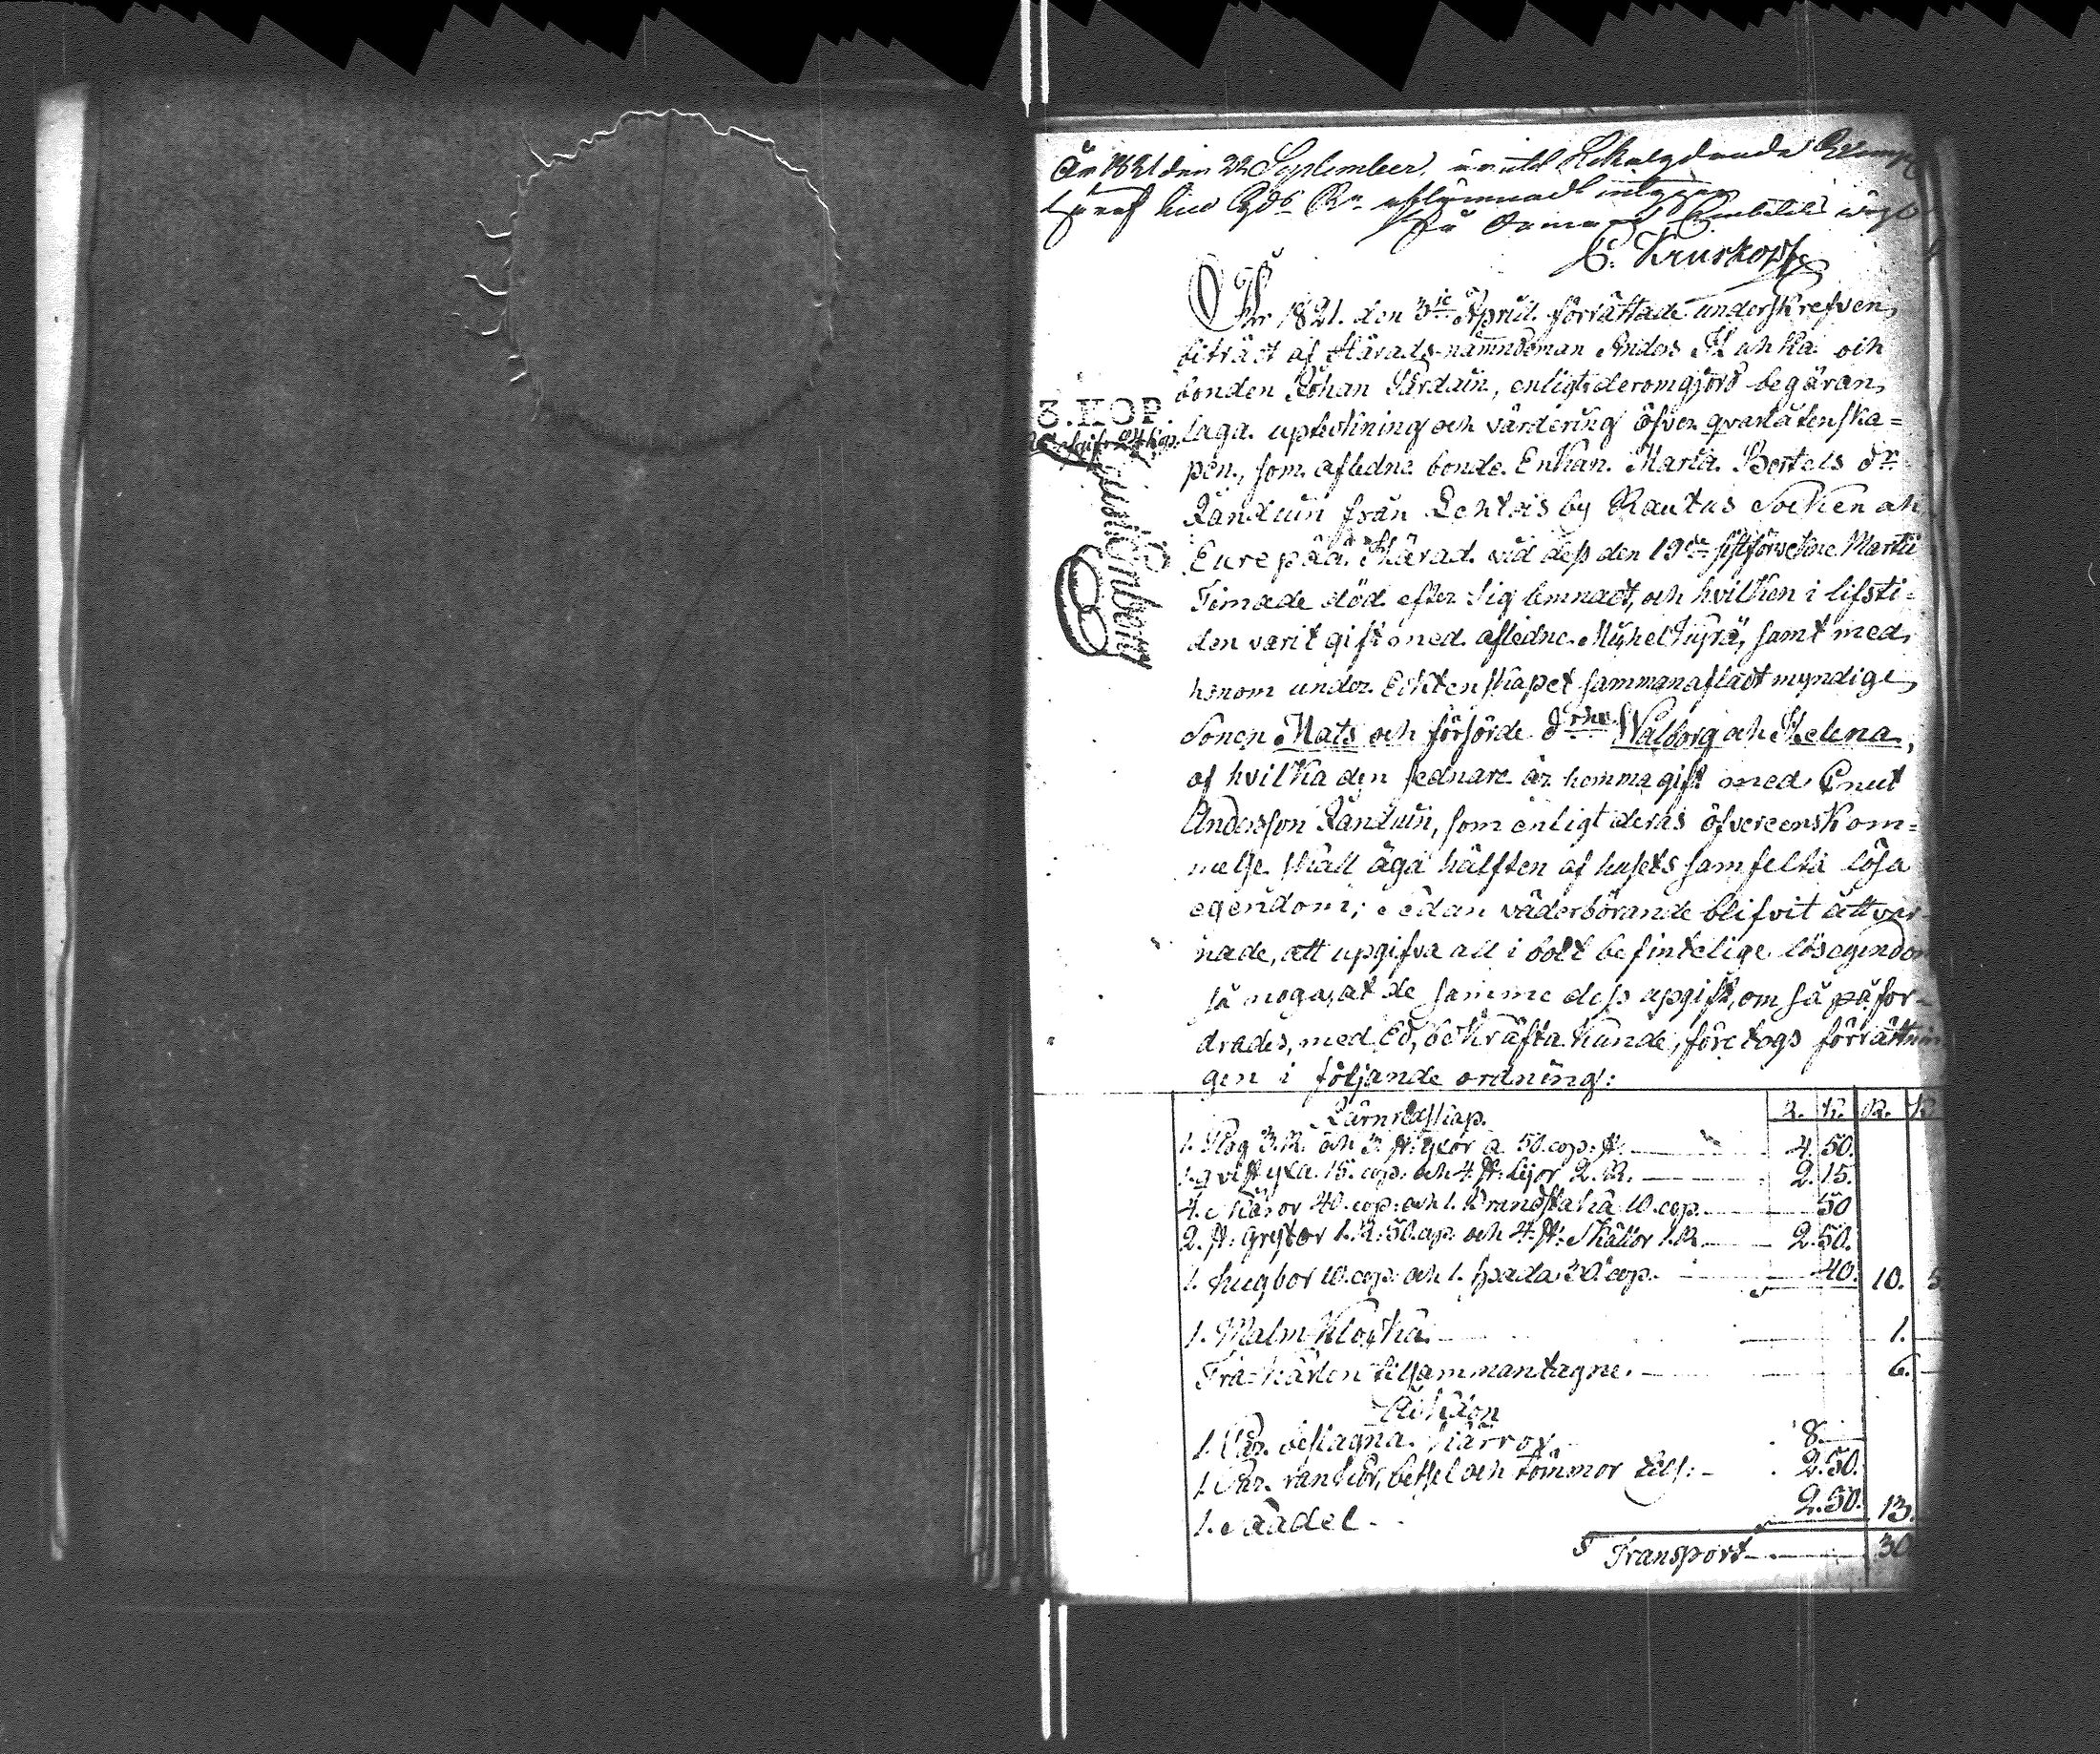 År 1821 den 22 September, är ett lika lydande Exempl
häraf
C. Kruskopf
År 1821. den 3ie April förrättade underskrefven,
biträdt af Härads-nämndeman Anders Kuhka och
bonden Johan Pärdäin, enligt derom gjord begäran,
laga uptekning och värdering öfver qvarlåtenska=
pen, som afledne bonde Enkan Maria Bertels dr
Ränduin från Lehtois by Rautus Socken och
Eurepää Härad vid dess den 19de sistförvekne Martii
Timade död efter sig lemnadt, och hvilken i lifsti=
den varit gift med afledne Michel Jüsrä, samt med
honom under Ecktenskapet sammanaflådt myndige
Sonen Mats och förförde drne Walborg och Helena,
af hvilka den sednare är hemmagift med Cnut
Andersson Ränduin, som enligt deras öfvereenskom=
melse skall äga hälften af husets samfelta lösa
egendom; Sedan väderbörande blifvit åttvar=
nade, att upgifva all i bolt befintelige lösegendom
så noga, at de samme dess upgift, om så påfor=
drades, med Ed, bekräfta kunde, företogs förrättnin
gen i följande ordning:
3. KOP.
Järnredskap. R. K. R. K
1. Plog 3. R. och 3. st: yxor a 50. cop: st. 4. 50.
1. qvist yxa 15. cop: och 4. st: lijor 2. R. 2. 15.
4. Skäror 40. cop: och 1. brandstaka 10. cop. 50
2. st: grytor 1. R: 50. cop: och 4. st: Skällor 1. R. 2. 50.
1. hugbor 10. cop: och 1. spada 30. cop. 40. 10. 5
1. Malm Klocka. 1.
Trä-kärlen tillsammantagne. 6.
Åkdon
1. Par beslagna kärror, 8.
1. Par rankor, betsel och tömmor 2. 50.
1. Saadel 2. 50. 13.
S Transport 30